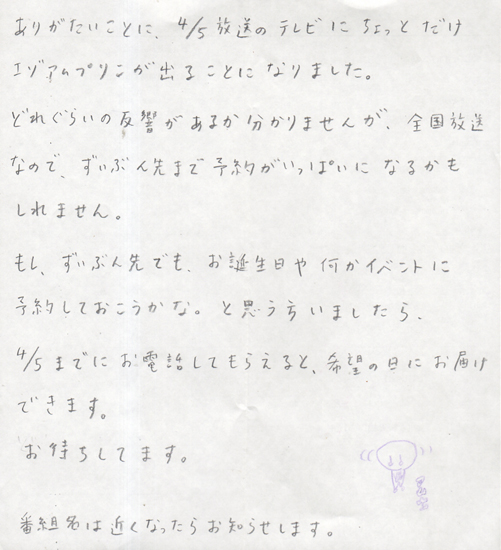 ありがたいことに、4/5放送のテレビにちょっとだけ
エゾアムプリンが出ることになりました。
どれぐらいの反響があるか分かりませんが、全国放送
なので、ずいぶん先まで予約がいっぱいになるかも
しれません。
もし、ずいぶん先でも、お誕生日や何かイベントに
予約しておこうかな。と思う方いましたら、
4/5までにお電話してもらえると、希望の日にお届け
できます。
お待ちしてます。
番組名は近くなったらお知らせします。